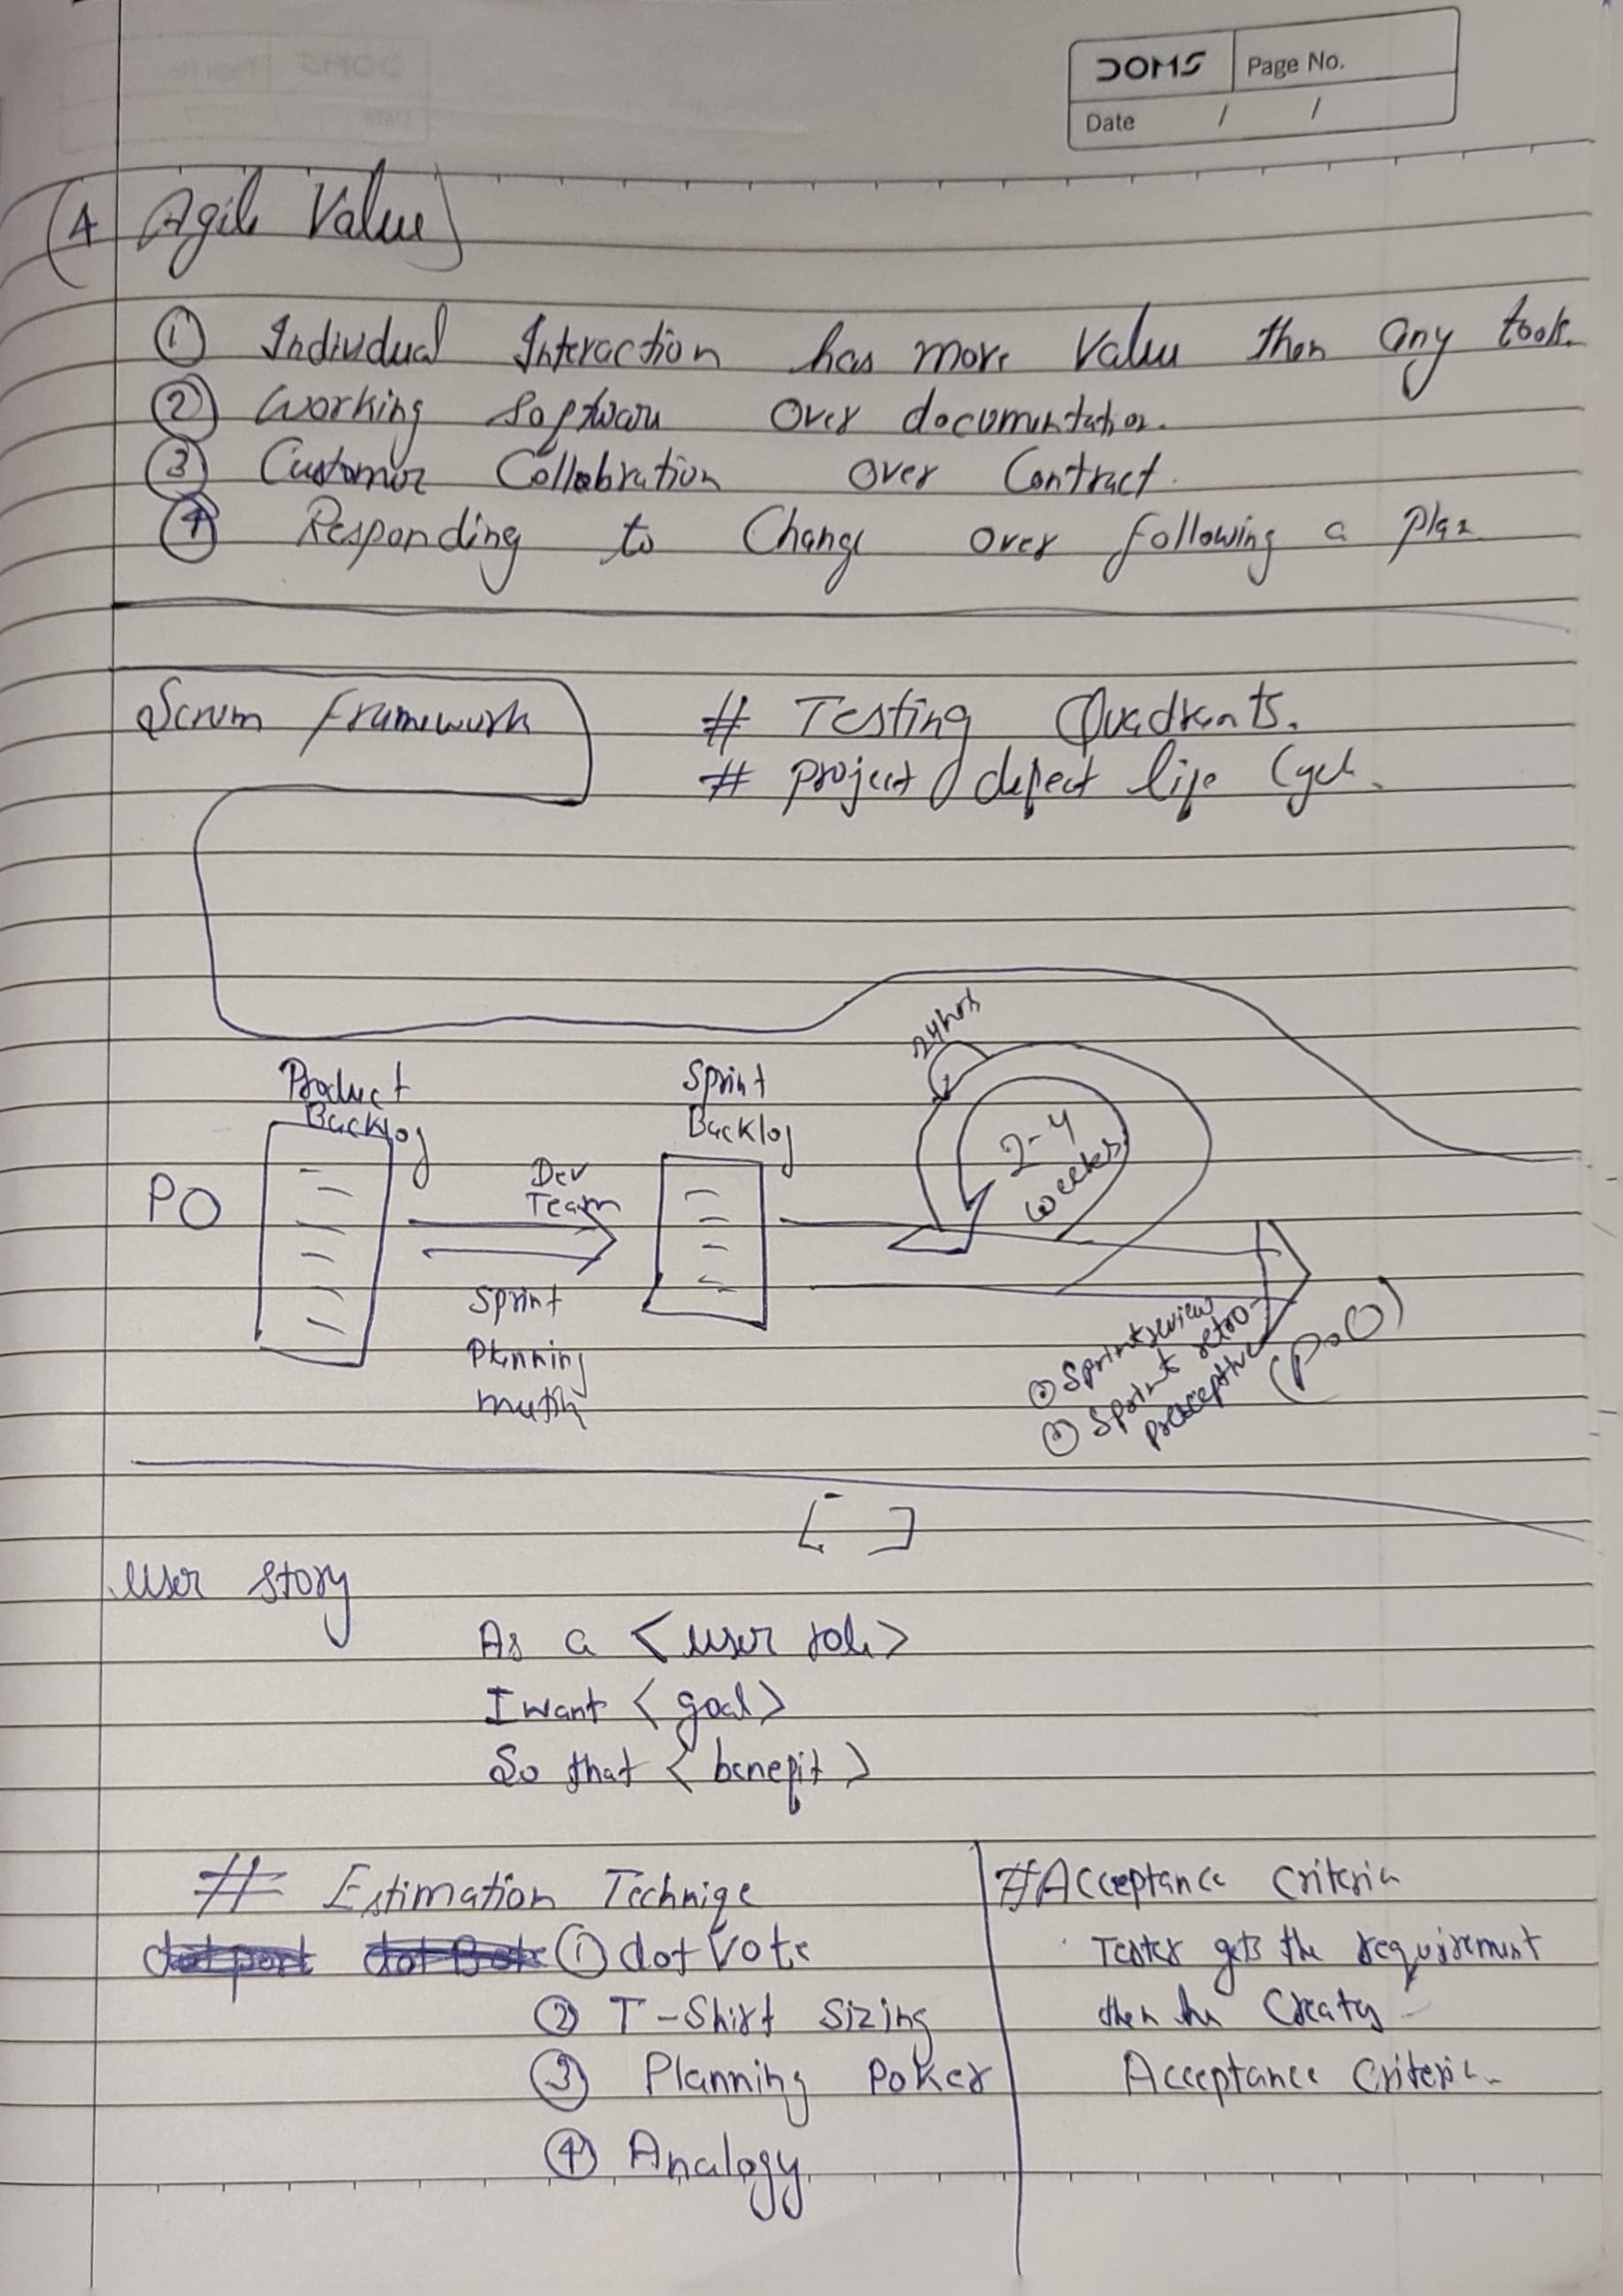 DOMS Page No.
Date / /
(4 Agile Value)
① Individual Interaction has more Value then any tools.
② Working Software Over documentation.
③ Customer Collabration over Contract.
④ Responding to Change over following a plan
Scrum framework
# Testing Quadrants.
# project / defect life Cycle.
24hrs
Product
Backlog
Sprint
Backlog
2-4
weeks
PO
Dev
Team
Sprint
Planning
① Sprint review
② Sprint retro-
preceptive
(P.O)
[ ]
User Story
As a <user role>
I want <goal>
So that <benefit>
# Estimation Technique
① dot Vote
② T-Shirt Sizing
③ Planning Poker
④ Analogy
#Acceptance Criteria
Tester gets the requirement
then he Creates
Acceptance Criteria.